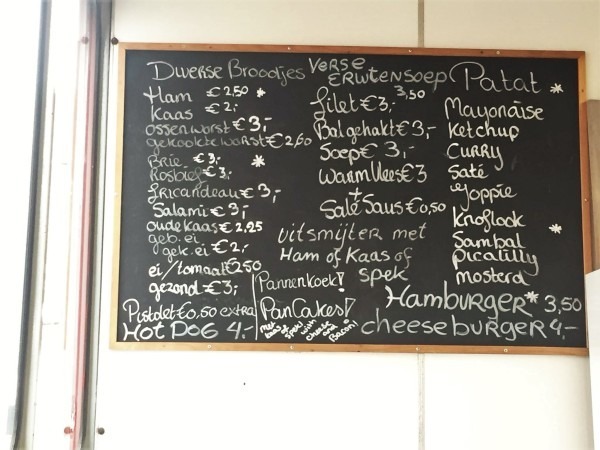 Diverse Broodjes
Ham €2,50 *
Kaas €2,-
ossenworst €3,-
gekookte worst €2,50
Brie €3,- *
Rosbief €3,-
fricandeau €3,-
Salami €3,-
oude kaas €2,25
geb. ei
gek. ei €2,-
ei/tomaat €250
gezond €3,-
Pistolet €0,50 extra
HOT DOG 4,-
Verse
ERWTENSOEP
3,50
filet €3,-
Bal gehakt €3,-
Soep €3,-
Warm Vlees €3
+
Saté Saus €0,50
Uitsmijter met
Ham of Kaas of
spek
Pannenkoek!
PanCakes!
met kaas of spek
with cheese and Bacon!
Patat *
Mayonaise
Ketchup
Curry
Saté
Joppie
Knoflook
Sambal *
Picalilly
mosterd
Hamburger * 3,50
cheeseburger 4,-